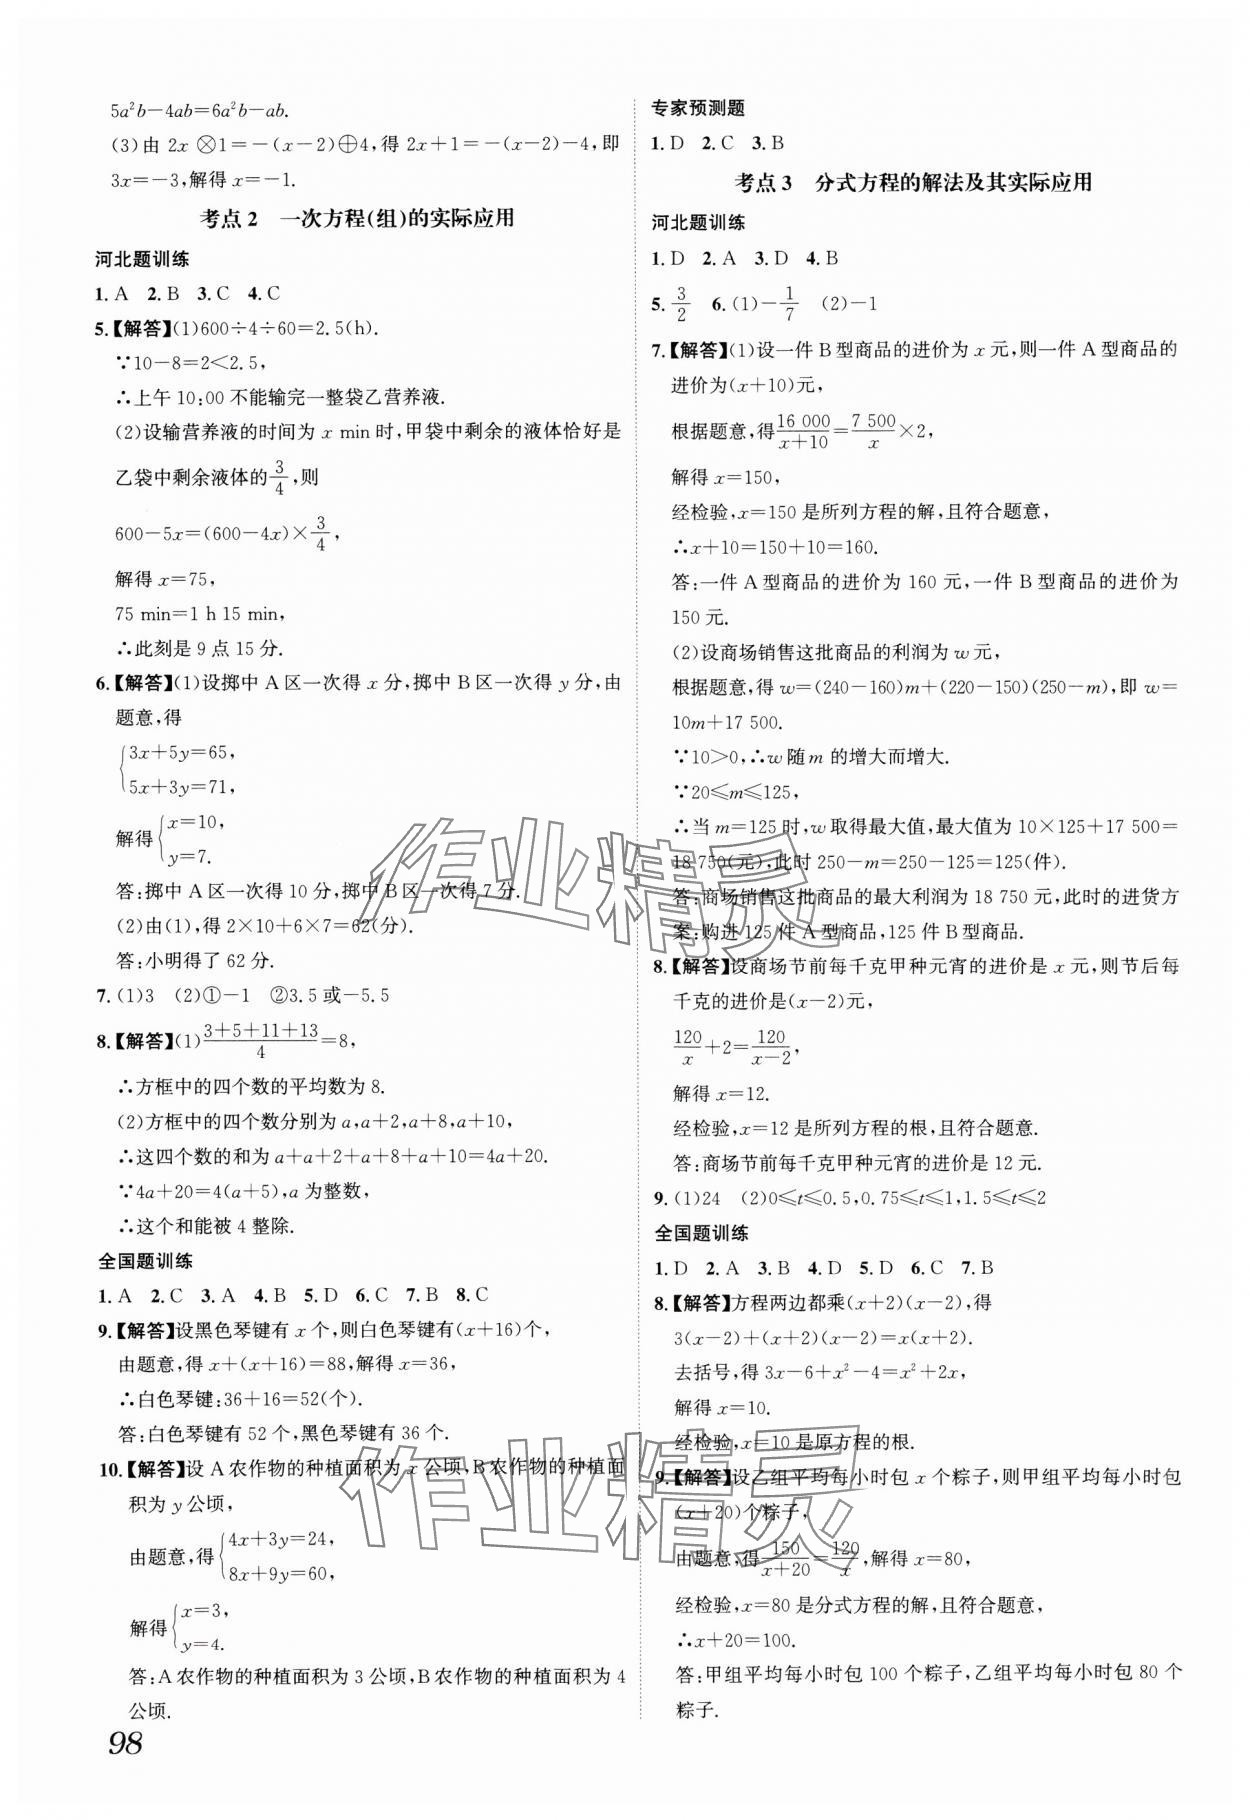 5a²b－4ab＝6a²b－ab.
(3)由 2x ⊗1＝－(x－2)⊕4,得 2x＋1＝－(x－2)－4,即
3x＝－3,解得 x＝－1.
考点 2　一次方程(组)的实际应用
河北题训练
1. A　2. B　3. C　4. C
5.【解答】(1)600÷4÷60＝2.5(h).
∵10－8＝2＜2.5,
∴上午 10:00 不能输完一整袋乙营养液.
(2)设输营养液的时间为 x min 时,甲袋中剩余的液体恰好是
乙袋中剩余液体的3/4,则
600－5x＝(600－4x)×3/4,
解得 x＝75,
75 min＝1 h 15 min,
∴此刻是 9 点 15 分.
6.【解答】(1)设掷中 A 区一次得 x 分,掷中 B 区一次得 y 分,由
题意,得
{3x＋5y＝65,
5x＋3y＝71,
解得{x＝10,
y＝7.
答:掷中 A 区一次得 10 分,掷中 B 区一次得 7 分.
(2)由(1),得 2×10＋6×7＝62(分).
答:小明得了 62 分.
7. (1)3　(2)①－1　②3.5 或－5.5
8.【解答】(1)(3＋5＋11＋13)/4＝8,
∴方框中的四个数的平均数为 8.
(2)方框中的四个数分别为 a,a＋2,a＋8,a＋10,
∴这四个数的和为 a＋a＋2＋a＋8＋a＋10＝4a＋20.
∵4a＋20＝4(a＋5),a 为整数,
∴这个和能被 4 整除.
全国题训练
1. A　2. C　3. A　4. B　5. D　6. C　7. B　8. C
9.【解答】设黑色琴键有 x 个,则白色琴键有(x＋16)个,
由题意,得 x＋(x＋16)＝88,解得 x＝36,
∴白色琴键:36＋16＝52(个).
答:白色琴键有 52 个,黑色琴键有 36 个.
10.【解答】设 A 农作物的种植面积为 x 公顷,B 农作物的种植面
积为 y 公顷,
由题意,得{4x＋3y＝24,
8x＋9y＝60,
解得{x＝3,
y＝4.
答:A 农作物的种植面积为 3 公顷,B 农作物的种植面积为 4
公顷.
98
专家预测题
1. D　2. C　3. B
考点 3　分式方程的解法及其实际应用
河北题训练
1. D　2. A　3. D　4. B
5. 3/2　6. (1)－1/7　(2)－1
7.【解答】(1)设一件 B 型商品的进价为 x 元,则一件 A 型商品的
进价为(x＋10)元,
根据题意,得16 000/(x＋10)＝7 500/x×2,
解得 x＝150,
经检验,x＝150 是所列方程的解,且符合题意,
∴x＋10＝150＋10＝160.
答:一件 A 型商品的进价为 160 元,一件 B 型商品的进价为
150 元.
(2)设商场销售这批商品的利润为 w 元,
根据题意,得 w＝(240－160)m＋(220－150)(250－m),即 w＝
10m＋17 500.
∵10＞0,∴w 随 m 的增大而增大.
∵20≤m≤125,
∴当 m＝125 时,w 取得最大值,最大值为 10×125＋17 500＝
18 750(元),此时 250－m＝250－125＝125(件).
答:商场销售这批商品的最大利润为 18 750 元,此时的进货方
案:购进 125 件 A 型商品,125 件 B 型商品.
8.【解答】设商场节前每千克甲种元宵的进价是 x 元,则节后每
千克的进价是(x－2)元,
120/x＋2＝120/(x－2),
解得 x＝12.
经检验,x＝12 是所列方程的根,且符合题意.
答:商场节前每千克甲种元宵的进价是 12 元.
9. (1)24　(2)0≤t≤0.5,0.75≤t≤1,1.5≤t≤2
全国题训练
1. D　2. A　3. B　4. D　5. D　6. C　7. B
8.【解答】方程两边都乘(x＋2)(x－2),得
3(x－2)＋(x＋2)(x－2)＝x(x＋2).
去括号,得 3x－6＋x²－4＝x²＋2x,
解得 x＝10.
经检验,x＝10 是原方程的根.
9.【解答】设乙组平均每小时包 x 个粽子,则甲组平均每小时包
(x＋20)个粽子,
由题意,得150/(x＋20)＝120/x,解得 x＝80,
经检验,x＝80 是分式方程的解,且符合题意,
∴x＋20＝100.
答:甲组平均每小时包 100 个粽子,乙组平均每小时包 80 个
粽子.
作业精灵
作业精灵